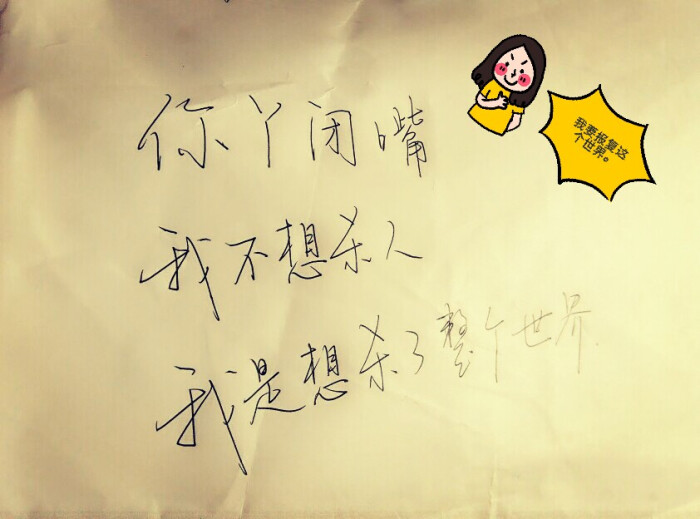 我要报复这
个世界。
你丫闭嘴
我不想杀人
我是想杀了整个世界